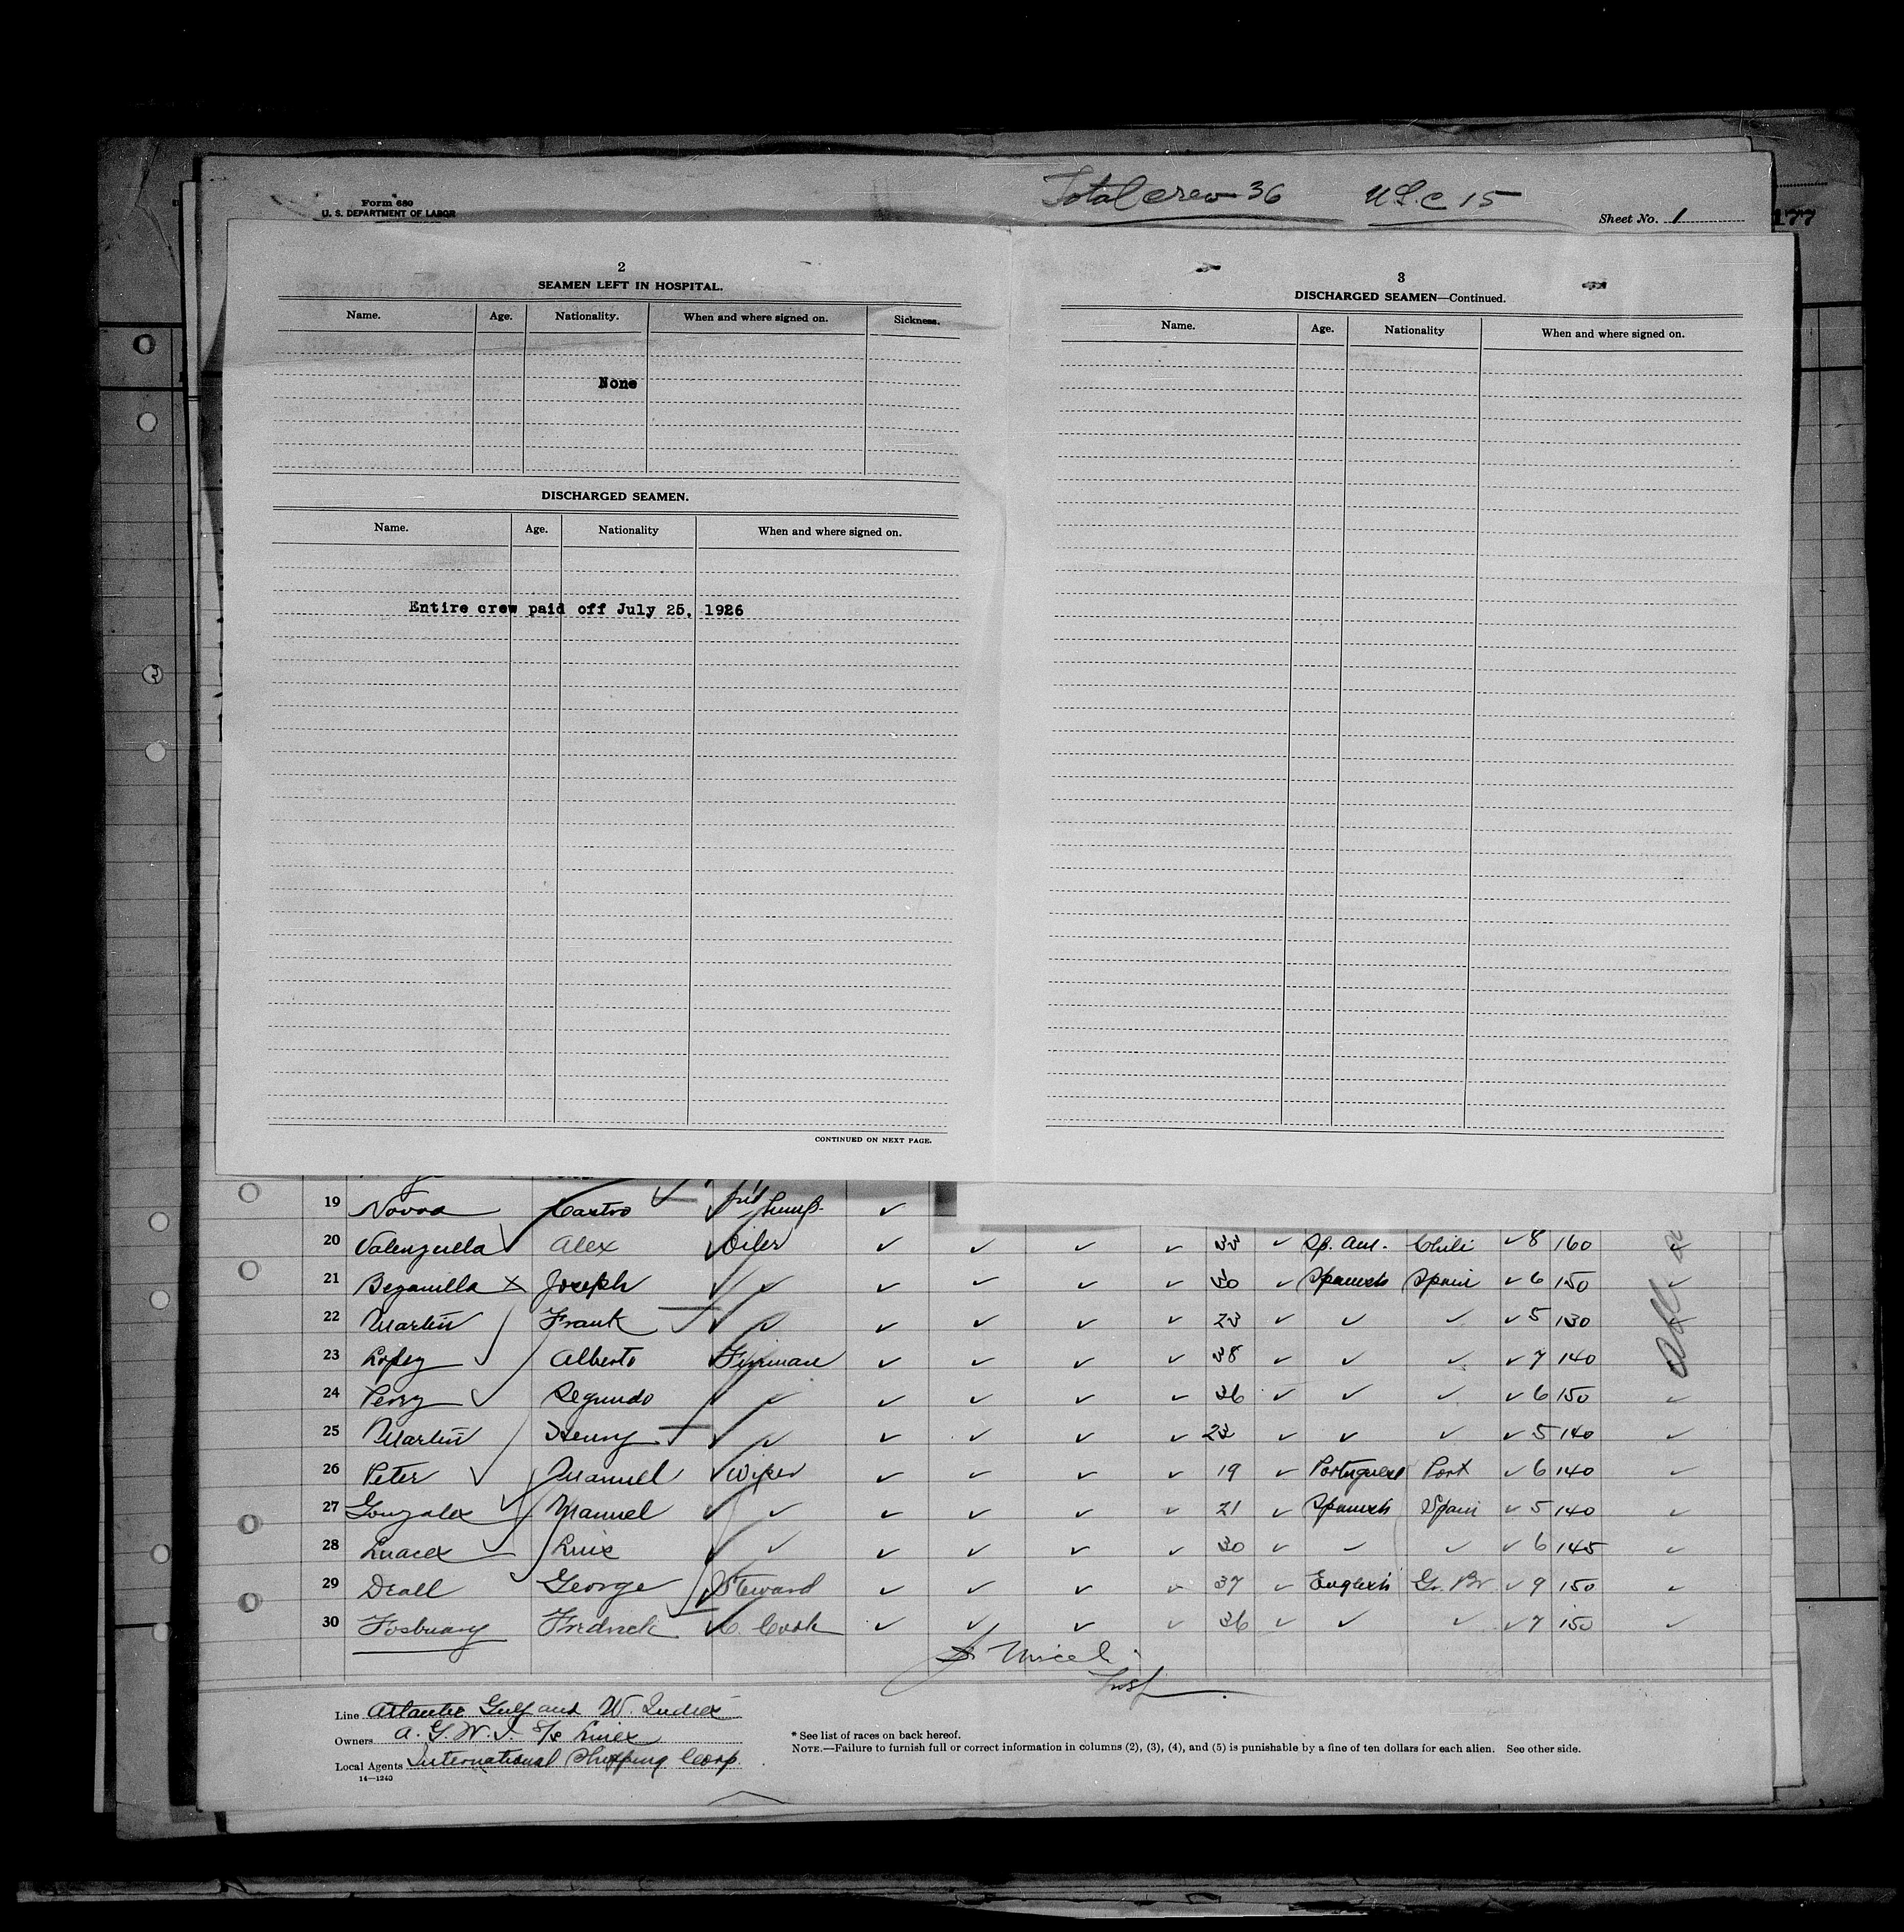 Form 680
U. S. DEPARTMENT OF LABOR
Total crew 36 U.S.C 15
Sheet No. 1
177
2
SEAMEN LEFT IN HOSPITAL.
Name. Age. Nationality. When and where signed on. Sickness.
None
DISCHARGED SEAMEN.
Name. Age. Nationality When and where signed on.
Entire crew paid off July 25, 1926
CONTINUED ON NEXT PAGE.
3
DISCHARGED SEAMEN—Continued.
Name. Age. Nationality When and where signed on.
19 Novoa Castro ✓
20 Valenzuella ✓ Alex ✓ Oiler ✓ ✓ ✓ ✓ 33 ✓ Sp. Am. Chili ✓ 8 160 ✓
21 Bezanilla X Joseph ✓ ✓ ✓ ✓ ✓ ✓ 30 ✓ Spanish Spain ✓ 6 150 ✓
22 Martin Frank ✓ ✓ ✓ ✓ ✓ ✓ 23 ✓ ✓ ✓ ✓ 5 130 ✓
23 Lopez ✓ Alberto Fireman ✓ ✓ ✓ ✓ 38 ✓ ✓ ✓ ✓ 7 140
24 Perry ✓ Segundo ✓ ✓ ✓ ✓ ✓ ✓ 36 ✓ ✓ ✓ ✓ 6 150 ✓
25 Martin Henry ✓ ✓ ✓ ✓ ✓ ✓ 23 ✓ ✓ ✓ ✓ 5 140 ✓
26 Peter ✓ Manuel ✓ Wiper ✓ ✓ ✓ ✓ 19 ✓ Portuguese Port ✓ 6 140 ✓
27 Gonzalez ✓ Manuel ✓ ✓ ✓ ✓ ✓ ✓ 21 ✓ Spanish Spain ✓ 5 140 ✓
28 ✓ Luis ✓ ✓ ✓ ✓ ✓ ✓ 30 ✓ ✓ ✓ ✓ 6 145 ✓
29 Deall George ✓ Steward ✓ ✓ ✓ ✓ 37 ✓ English Gr. Br ✓ 9 150 ✓
30 Fosbuary Fredrick ✓ C. Cook ✓ ✓ ✓ ✓ 36 ✓ ✓ ✓ ✓ 7 150 ✓
Insp
Line Atlantic Gulf and W. Indies
Owners A. G. W. I. S/S Lines
Local Agents International Shipping Corp.
14—1240
* See list of races on back hereof.
NOTE.—Failure to furnish full or correct information in columns (2), (3), (4), and (5) is punishable by a fine of ten dollars for each alien. See other side.